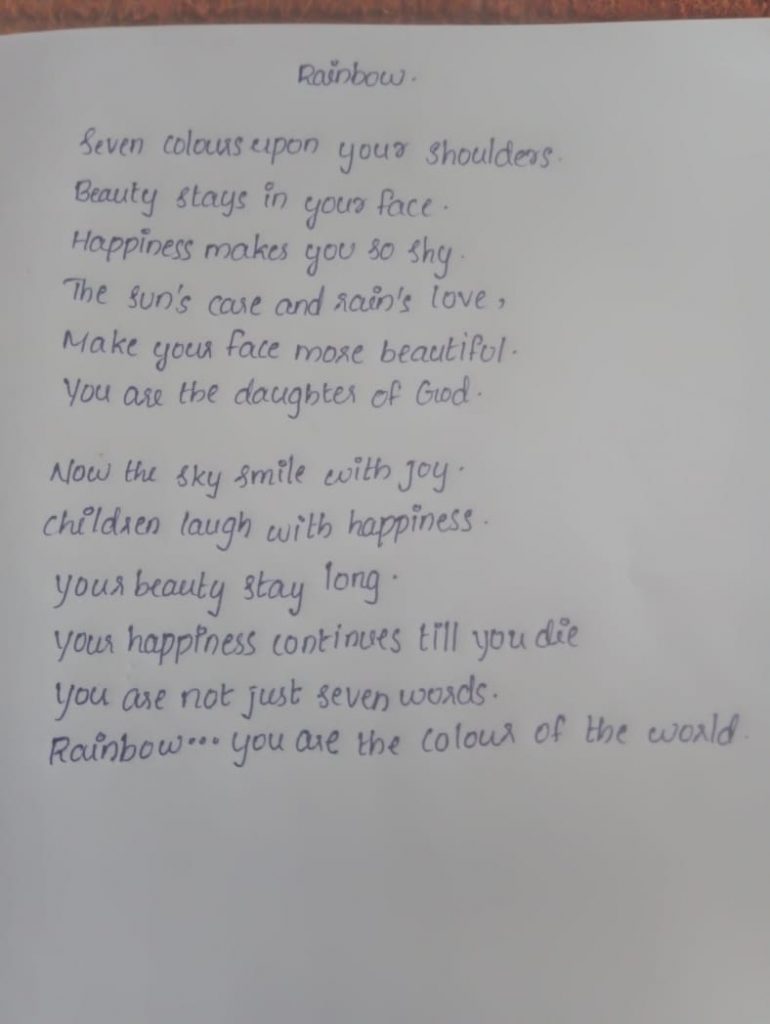 Rainbow.
Seven colours upon your shoulders.
Beauty stays in your face.
Happiness makes you so shy.
The sun's care and rain's love,
Make your face more beautiful.
You are the daughter of God.
Now the sky smile with joy.
Children laugh with happiness.
Your beauty stay long.
Your happiness continues till you die
You are not just seven words.
Rainbow... you are the colour of the world.